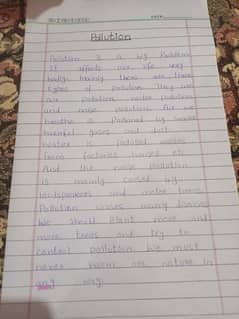 Pollution
Pollution is a big Problem
It affects our life very
badly. Mainly there are three
types of pollution. They are
air pollution, water pollution
and noise pollution. Air we
breathe is Poisoned by
harmful gases and dust.
Water is polluted
from factories
And the noise pollution
is mainly caused by
loudspeakers and motor horns.
Pollution causes many diseases
We should plant more and
more trees and try to
control pollution. We must
never harm our nature in
any way.